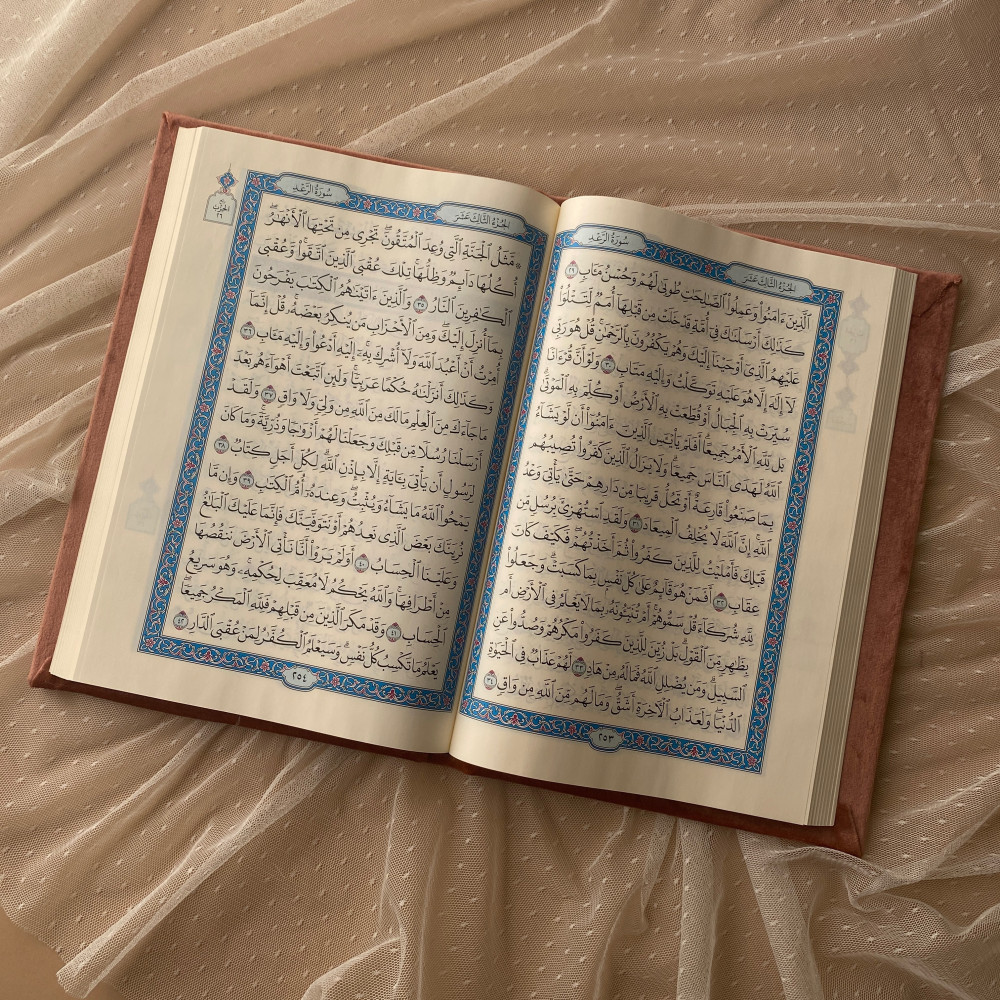 سُورَةُ الرَّعْدِ
الجُزْءُ الثَّالِثَ عَشَرَ
ٱلَّذِينَ ءَامَنُواْ وَعَمِلُواْ ٱلصَّٰلِحَٰتِ طُوبَىٰ لَهُمۡ وَحُسۡنُ مَـَٔابٖ ٢٩
كَذَٰلِكَ أَرۡسَلۡنَٰكَ فِيٓ أُمَّةٖ قَدۡ خَلَتۡ مِن قَبۡلِهَآ أُمَمٞ لِّتَتۡلُوَاْ
عَلَيۡهِمُ ٱلَّذِيٓ أَوۡحَيۡنَآ إِلَيۡكَ وَهُمۡ يَكۡفُرُونَ بِٱلرَّحۡمَٰنِۚ قُلۡ هُوَ رَبِّي
لَآ إِلَٰهَ إِلَّا هُوَ عَلَيۡهِ تَوَكَّلۡتُ وَإِلَيۡهِ مَتَابِ ٣٠ وَلَوۡ أَنَّ قُرۡءَانٗا
سُيِّرَتۡ بِهِ ٱلۡجِبَالُ أَوۡ قُطِّعَتۡ بِهِ ٱلۡأَرۡضُ أَوۡ كُلِّمَ بِهِ ٱلۡمَوۡتَىٰۗ
بَل لِّلَّهِ ٱلۡأَمۡرُ جَمِيعًاۗ أَفَلَمۡ يَاْيۡـَٔسِ ٱلَّذِينَ ءَامَنُوٓاْ أَن لَّوۡ يَشَآءُ
ٱللَّهُ لَهَدَى ٱلنَّاسَ جَمِيعٗاۗ وَلَا يَزَالُ ٱلَّذِينَ كَفَرُواْ تُصِيبُهُم
بِمَا صَنَعُواْ قَارِعَةٌ أَوۡ تَحُلُّ قَرِيبٗا مِّن دَارِهِمۡ حَتَّىٰ يَأۡتِيَ وَعۡدُ
ٱللَّهِۚ إِنَّ ٱللَّهَ لَا يُخۡلِفُ ٱلۡمِيعَادَ ٣١ وَلَقَدِ ٱسۡتُهۡزِئَ بِرُسُلٖ مِّن
قَبۡلِكَ فَأَمۡلَيۡتُ لِلَّذِينَ كَفَرُواْ ثُمَّ أَخَذۡتُهُمۡۖ فَكَيۡفَ كَانَ
عِقَابِ ٣٢ أَفَمَنۡ هُوَ قَآئِمٌ عَلَىٰ كُلِّ نَفۡسِۭ بِمَا كَسَبَتۡۗ وَجَعَلُواْ
لِلَّهِ شُرَكَآءَ قُلۡ سَمُّوهُمۡۚ أَمۡ تُنَبِّـُٔونَهُۥ بِمَا لَا يَعۡلَمُ فِي ٱلۡأَرۡضِ أَم
بِظَٰهِرٖ مِّنَ ٱلۡقَوۡلِۗ بَلۡ زُيِّنَ لِلَّذِينَ كَفَرُواْ مَكۡرُهُمۡ وَصُدُّواْ عَنِ
ٱلسَّبِيلِۗ وَمَن يُضۡلِلِ ٱللَّهُ فَمَا لَهُۥ مِنۡ هَادٖ ٣٣ لَّهُمۡ عَذَابٞ فِي ٱلۡحَيَوٰةِ
ٱلدُّنۡيَاۖ وَلَعَذَابُ ٱلۡأٓخِرَةِ أَشَقُّۖ وَمَا لَهُم مِّنَ ٱللَّهِ مِن وَاقٖ ٣٤
٢٥٣
سُورَةُ الرَّعْدِ
الجُزْءُ الثَّالِثَ عَشَرَ
الحِزْب
٢٦
۞ مَّثَلُ ٱلۡجَنَّةِ ٱلَّتِي وُعِدَ ٱلۡمُتَّقُونَۖ تَجۡرِي مِن تَحۡتِهَا ٱلۡأَنۡهَٰرُۖ
أُكُلُهَا دَآئِمٞ وَظِلُّهَاۚ تِلۡكَ عُقۡبَى ٱلَّذِينَ ٱتَّقَواْۚ وَّعُقۡبَى
ٱلۡكَٰفِرِينَ ٱلنَّارُ ٣٥ وَٱلَّذِينَ ءَاتَيۡنَٰهُمُ ٱلۡكِتَٰبَ يَفۡرَحُونَ
بِمَآ أُنزِلَ إِلَيۡكَۖ وَمِنَ ٱلۡأَحۡزَابِ مَن يُنكِرُ بَعۡضَهُۥۚ قُلۡ إِنَّمَآ
أُمِرۡتُ أَنۡ أَعۡبُدَ ٱللَّهَ وَلَآ أُشۡرِكَ بِهِۦٓۚ إِلَيۡهِ أَدۡعُواْ وَإِلَيۡهِ مَـَٔابِ ٣٦
وَكَذَٰلِكَ أَنزَلۡنَٰهُ حُكۡمًا عَرَبِيّٗاۚ وَلَئِنِ ٱتَّبَعۡتَ أَهۡوَآءَهُم بَعۡدَ
مَا جَآءَكَ مِنَ ٱلۡعِلۡمِ مَا لَكَ مِنَ ٱللَّهِ مِن وَلِيّٖ وَلَا وَاقٖ ٣٧ وَلَقَدۡ
أَرۡسَلۡنَا رُسُلٗا مِّن قَبۡلِكَ وَجَعَلۡنَا لَهُمۡ أَزۡوَٰجٗا وَذُرِّيَّةٗۚ وَمَا كَانَ
لِرَسُولٍ أَن يَأۡتِيَ بِـَٔايَةٍ إِلَّا بِإِذۡنِ ٱللَّهِۗ لِكُلِّ أَجَلٖ كِتَابٞ ٣٨
يَمۡحُواْ ٱللَّهُ مَا يَشَآءُ وَيُثۡبِتُۖ وَعِندَهُۥٓ أُمُّ ٱلۡكِتَٰبِ ٣٩ وَإِن مَّا
نُرِيَنَّكَ بَعۡضَ ٱلَّذِي نَعِدُهُمۡ أَوۡ نَتَوَفَّيَنَّكَ فَإِنَّمَا عَلَيۡكَ ٱلۡبَلَٰغُ
وَعَلَيۡنَا ٱلۡحِسَابُ ٤٠ أَوَلَمۡ يَرَوۡاْ أَنَّا نَأۡتِي ٱلۡأَرۡضَ نَنقُصُهَا
مِنۡ أَطۡرَافِهَاۚ وَٱللَّهُ يَحۡكُمُ لَا مُعَقِّبَ لِحُكۡمِهِۦۚ وَهُوَ سَرِيعُ
ٱلۡحِسَابِ ٤١ وَقَدۡ مَكَرَ ٱلَّذِينَ مِن قَبۡلِهِمۡ فَلِلَّهِ ٱلۡمَكۡرُ جَمِيعٗاۖ
يَعۡلَمُ مَا تَكۡسِبُ كُلُّ نَفۡسٖۗ وَسَيَعۡلَمُ ٱلۡكُفَّٰرُ لِمَنۡ عُقۡبَى ٱلدَّارِ ٤٢
٢٥٤